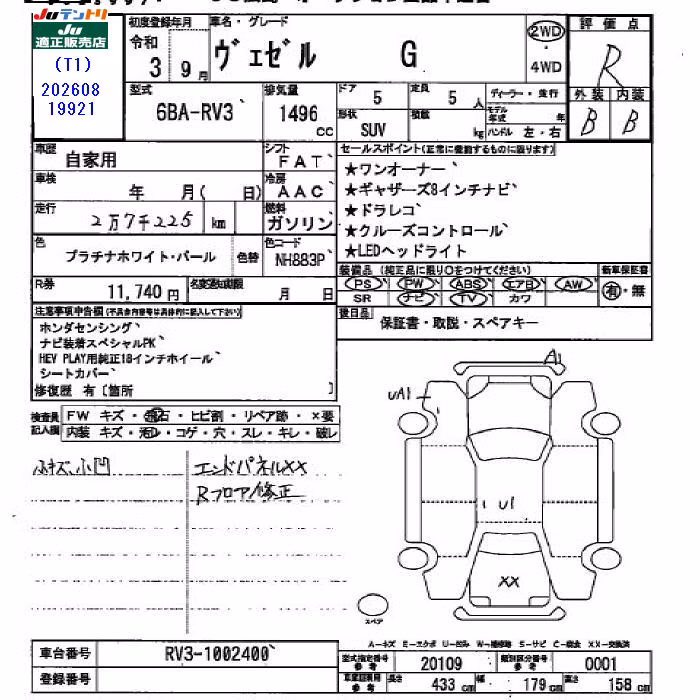 Juテントリ
Ju
適正販売店
(T1)
202608
19921
初度登録年月
令和
3年9月
車名・グレード
ヴェゼル G
2WD
・
4WD
評価点
R
外装 内装
B B
型式
6BA-RV3
排気量
1496
cc
ドア
5
定員
5人
形状
SUV
積載
kg
ディーラー・並行
モデル年式 年
ハンドル 左・右
車歴
自家用
シフト
FAT
車検
年 月( 日)
冷房
AAC
走行
2万7千225 km
燃料
ガソリン
色
プラチナホワイト・パール
色替
色コード
NH883P
R券
11,740円
名変期限
月 日
セールスポイント(正常に機能するものに限ります)
★ワンオーナー
★ギャザーズ8インチナビ
★ドラレコ
★クルーズコントロール
★LEDヘッドライト
装備品 (純正品に限り○をつけてください)
新車保証書
PS PW ABS エアB AW
SR ナビ TV カワ
有・無
後日品
保証書・取説・スペアキー
注意事項申告欄(不具合内容等は具体的に記入して下さい)
ホンダセンシング
ナビ装着スペシャルPK
HEV PLAY用純正18インチホイール
シートカバー
修復歴 有〔箇所 〕
検査員記入欄
FW キズ・飛石・ヒビ割・リペア跡・×要
内装 キズ・汚レ・コゲ・穴・スレ・キレ・破レ
小キズ、小凹
エンドパネルXX
Rフロア修正
A1
UA1
U1
XX
スペア
A─キズ E─エクボ U─凹み W─補修跡 S─サビ C─腐食 XX─交換済
車台番号
RV3-1002400
登録番号
型式指定番号
参考
20109
類別区分番号
参考
0001
車庫証明用
参考
長さ 433cm
幅 179cm
高さ 158cm